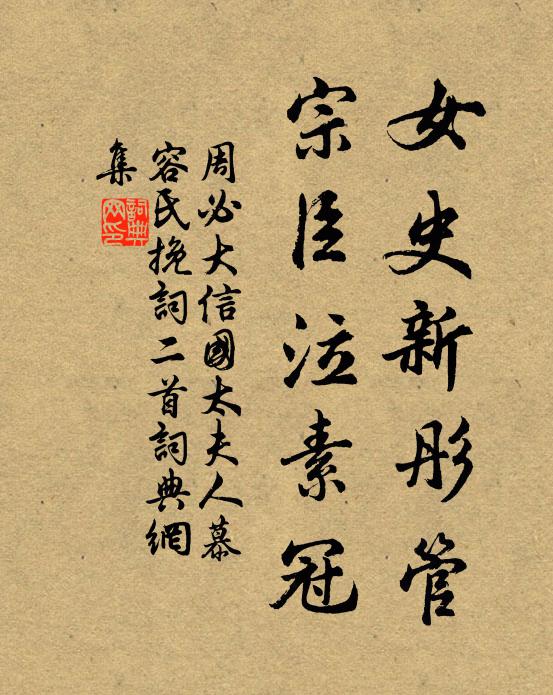 女史新彤管
宗臣泣素冠
周必大信國太夫人慕
容氏挽詞二首詞典網
集
詞典網印